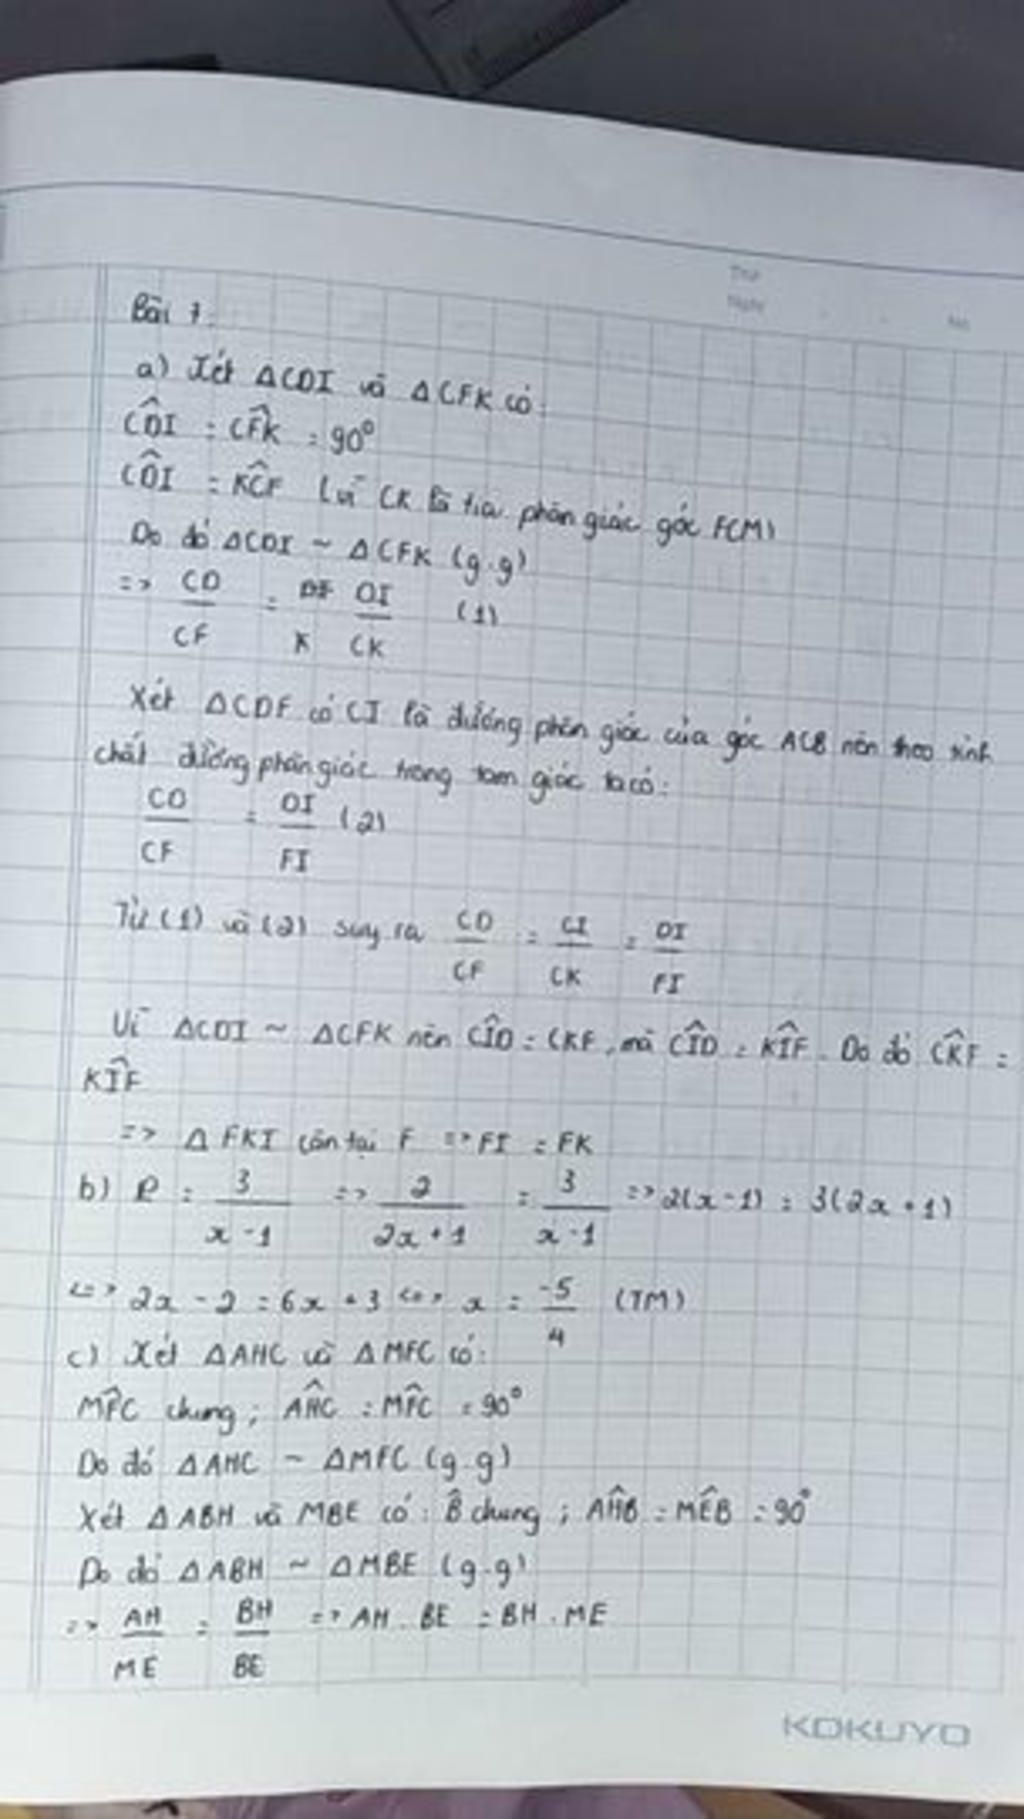 Thứ
Ngày . . No.
Bài 7:
a) Xét ΔCDI và ΔCFK có:
CD̂I = CF̂K = 90°
CD̂I = KĈF (vì CK là tia phân giác góc FCM)
Do đó ΔCDI ~ ΔCFK (g.g)
=> CD/CF = DI/CK (1)
Xét ΔCDF có CI là đường phân giác của góc ACB nên theo tính
chất đường phân giác trong tam giác ta có:
CD/CF = DI/FI (2)
Từ (1) và (2) suy ra CD/CF = CI/CK = DI/FI
Vì ΔCDI ~ ΔCFK nên CÎD = CKF, mà CÎD = KÎF. Do đó CK̂F =
KÎF
=> ΔFKI cân tại F => FI = FK
b) P = 3/(x-1) => 2/(2x+1) = 3/(x-1) => 2(x-1) = 3(2x+1)
<=> 2x - 2 = 6x + 3 <=> x = -5/4 (TM)
c) Xét ΔAHC và ΔMFC có:
MF̂C chung; AĤC = MF̂C = 90°
Do đó ΔAHC ~ ΔMFC (g.g)
Xét ΔABH và MBE có: B̂ chung; AĤB = MÊB = 90°
Do đó ΔABH ~ ΔMBE (g.g)
=> AH/ME = BH/BE => AH . BE = BH . ME
KOKUYO